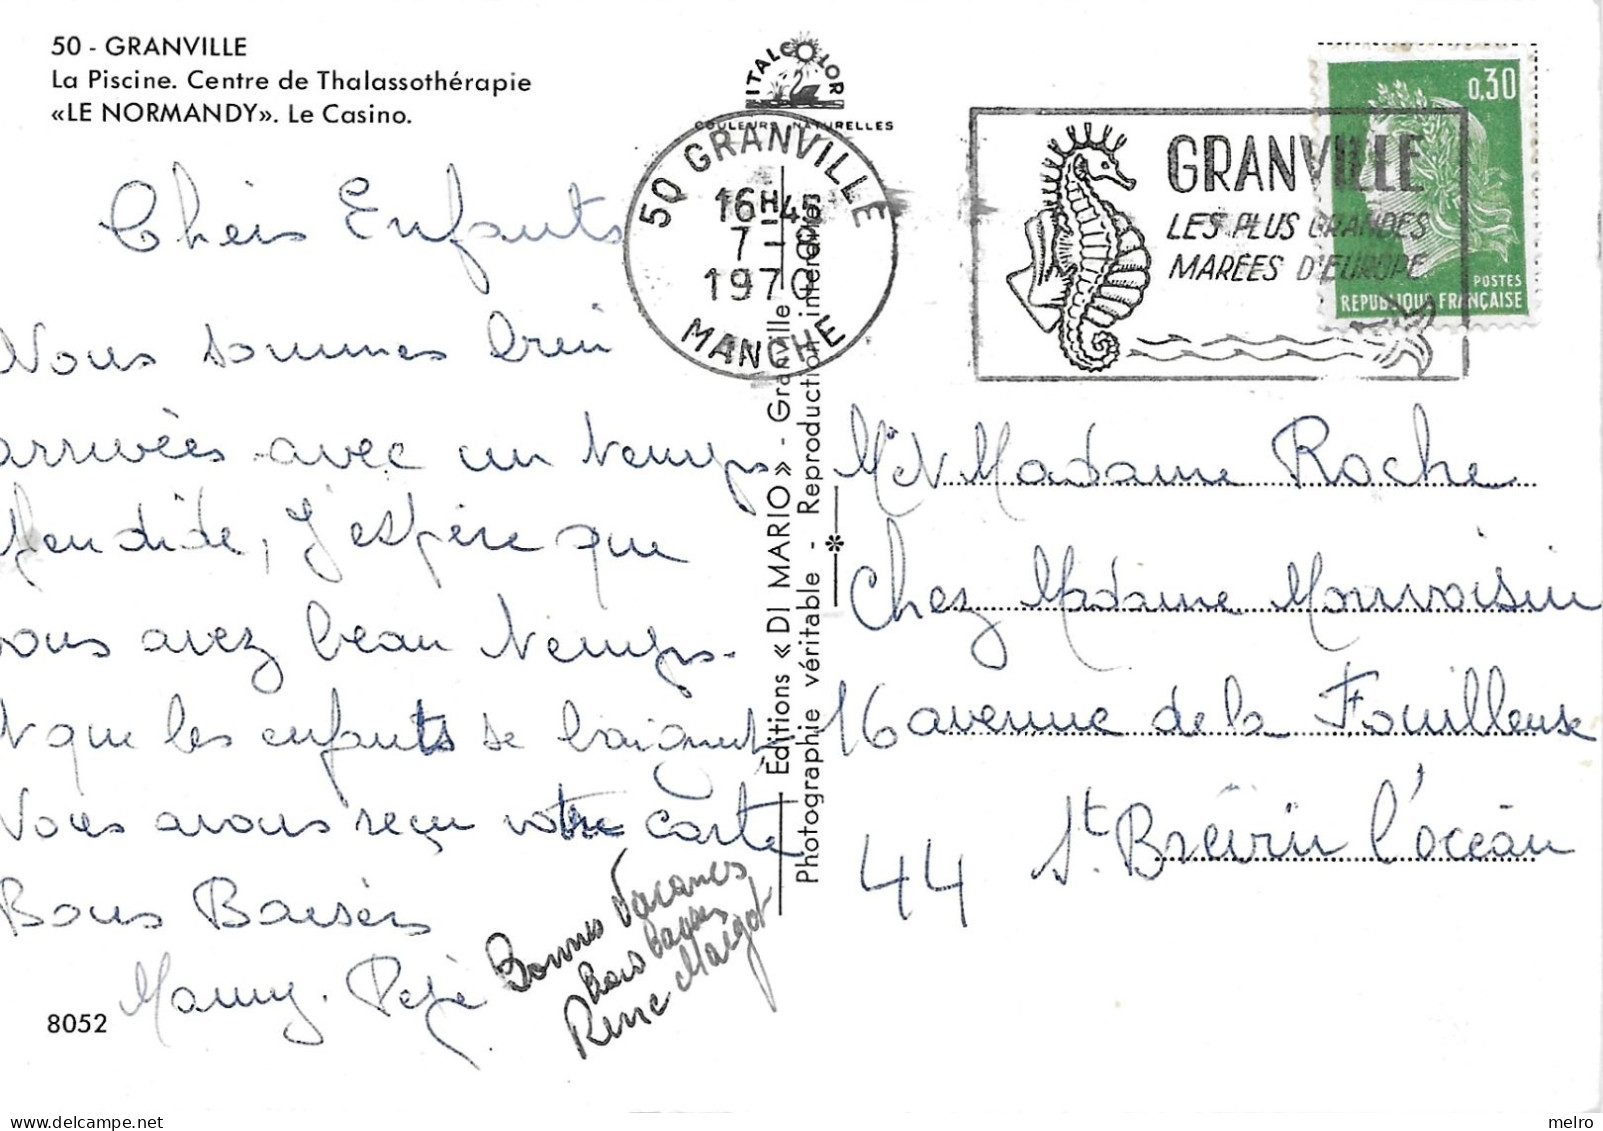 50 - GRANVILLE
La Piscine. Centre de Thalassothérapie
«LE NORMANDY». Le Casino.
ITALCOLOR
COULEURS NATURELLES
50 GRANVILLE
16H45
7 - 8
1970
MANCHE
GRANVILLE
LES PLUS GRANDES
MARÉES D'EUROPE
0,30
POSTES
REPUBLIQUE FRANÇAISE
Chers Enfants
Nous sommes bien
arrivées avec un temps
splendide, J'espère que
vous avez beau temps.
et que les enfants se baignent
Nous avons reçu votre carte
Bons Baisers
Mamy. Pépé
Bonnes Vacances
bons baisers
René Margot
8052
Editions «DI MARIO» - Granville
Photographie véritable - Reproduction interdite
Mr et Madame Roche
Chez Madame Monvoisin
16 avenue de la Fouilleuse
44 St. Brévin l'océan
melro